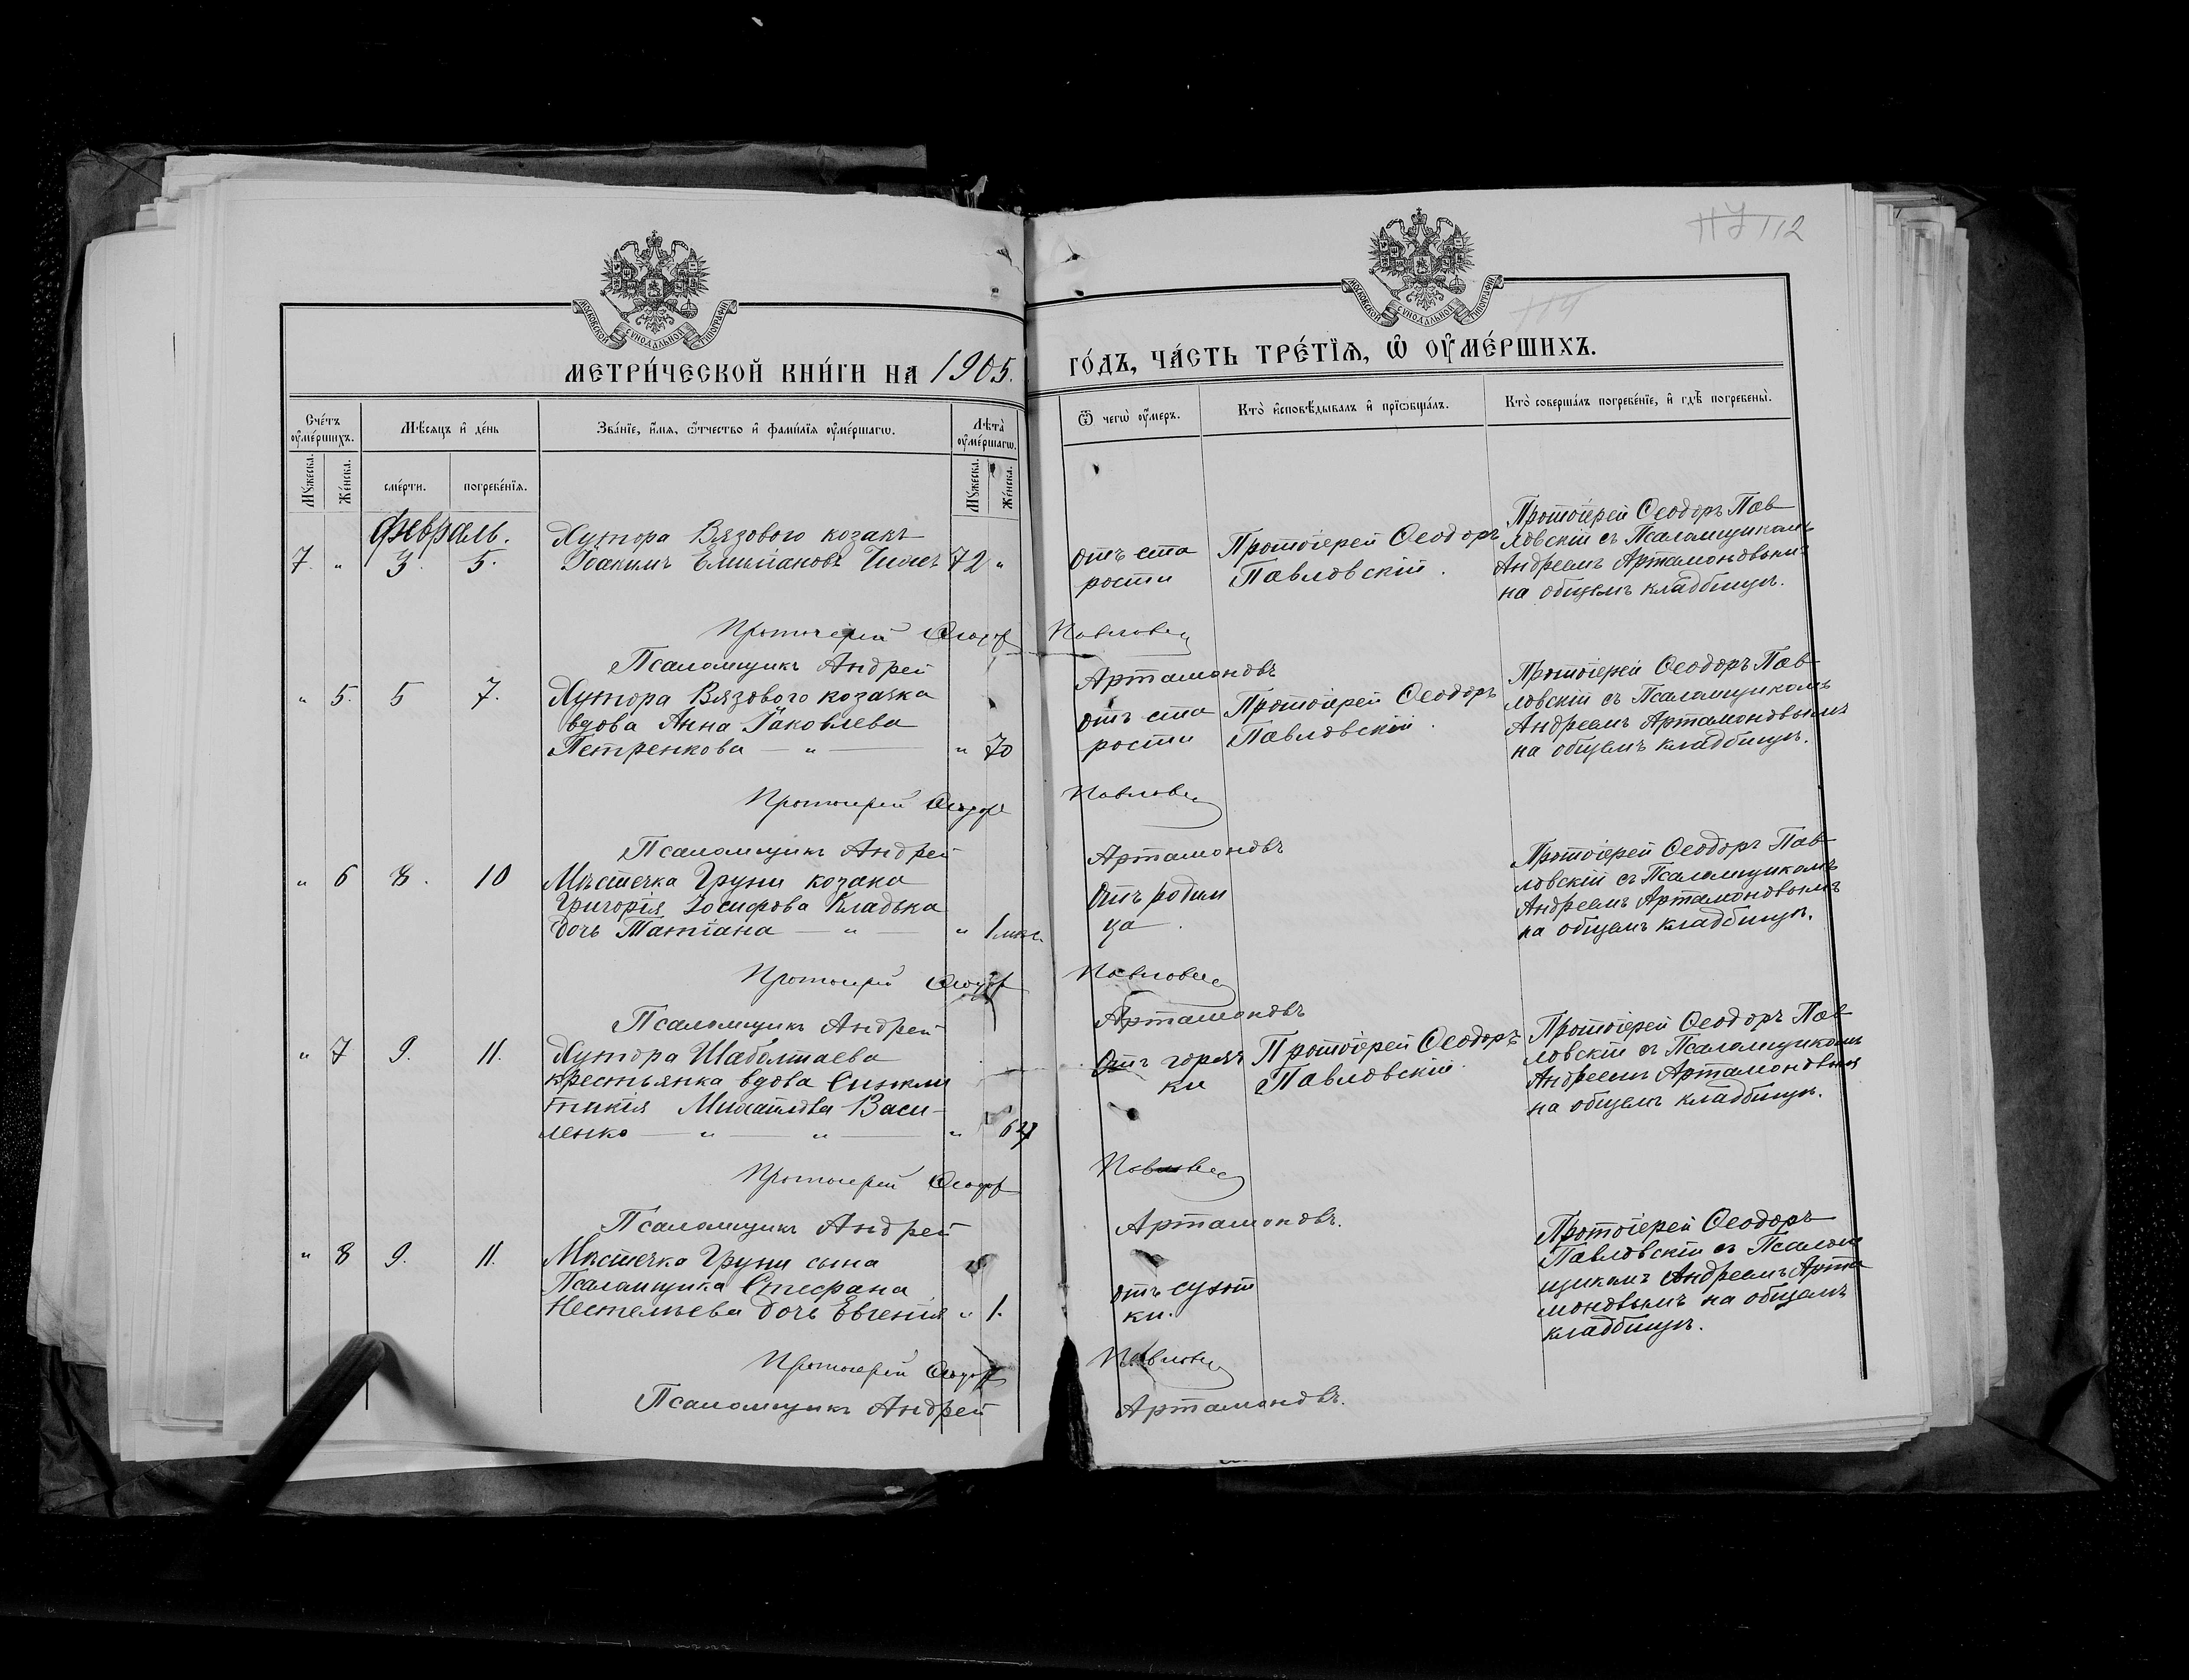 117 112
114
МОСКОВСКОЙ СѴНОДАЛЬНОЙ ТИПОГРАФІИ
МОСКОВСКОЙ СѴНОДАЛЬНОЙ ТИПОГРАФІИ
МЕТРИ́ЧЕСКОЙ КНИ́ГИ НА 1905.
ГО́ДЪ, ЧА́СТЬ ТРЕ́ТЇѦ, Ѡ҆ ОУ҆МЕ́РШИХЪ.
Сче́тъ оу҆ме́ршихъ.
Мѣ́сѧцъ и҆ де́нь
Зва́нїе, и҆́мѧ, ѻ҆́тчество и҆ фами́лїѧ оу҆ме́ршагѡ.
Лѣта̀ оу҆ме́ршагѡ.
Ѿ чегѡ̀ оу҆́меръ.
Кто̀ и҆сповѣ́дывалъ и҆ прїѡбща́лъ.
Кто̀ соверша́лъ погребе́нїе, и҆ гдѣ̀ погребены̀.
Мꙋ́жеска.
Же́нска.
сме́рти.
погребе́нїѧ.
Мꙋ́жеска.
Же́нска.
Февраль.
Хутора Вязового козакъ
7. " 3. 5. Іоакимъ Емиліановъ 72 "
отъ ста
рости
Протоіерей Ѳеодоръ
Павловскій.
Протоіерей Ѳеодоръ Пав
ловскій съ Псаломщикомъ
Андреемъ Артамоновымъ
на общемъ кладбищѣ.
Протоіерей Ѳеодор Павловск
Псаломщикъ Андрей Артамоновъ
" 5. 5 7. Хутора Вязового козачка
вдова Анна Іаковлева
Петренкова — " — " 70
отъ ста
рости
Протоіерей Ѳеодоръ
Павловскій.
Протоіерей Ѳеодоръ Пав
ловскій съ Псаломщикомъ
Андреемъ Артамоновымъ
на общемъ кладбищѣ.
Протоіерей Ѳеодор Павловск
Псаломщикъ Андрей Артамоновъ
" 6 8. 10 Мѣстечка Груни козака
Григорія Іосифова Кладька
дочь Татіана — " — " 1 мѣс.
Отъ родим
ца.
Протоіерей Ѳеодоръ Пав
ловскій съ Псаломщикомъ
Андреемъ Артамоновымъ
на общемъ кладбищѣ.
Протоіерей Ѳеодор Павловск
Псаломщикъ Андрей Артамоновъ
" 7 9. 11. Хутора Шаболтаева
крестьянка вдова Синкли
тикія Михайлова Васи-
ленко — " — " — " 64
Отъ горяч
ки
Протоіерей Ѳеодоръ
Павловскій.
Протоіерей Ѳеодоръ Пав
ловскій съ Псаломщикомъ
Андреемъ Артамоновым
на общемъ кладбищѣ.
Протоіерей Ѳеодор Павловск
Псаломщикъ Андрей Артамоновъ.
" 8 9. 11. Мѣстечка Груни сына
Псаломщика Стефана
дочь Евгенія " 1.
отъ сухот
ки.
Протоіерей Ѳеодоръ
Павловскій съ Псалом
щикомъ Андреемъ Арта
моновымъ на общемъ
кладбищѣ.
Протоіерей Ѳеодор Павловск
Псаломщикъ Андрей Артамоновъ.